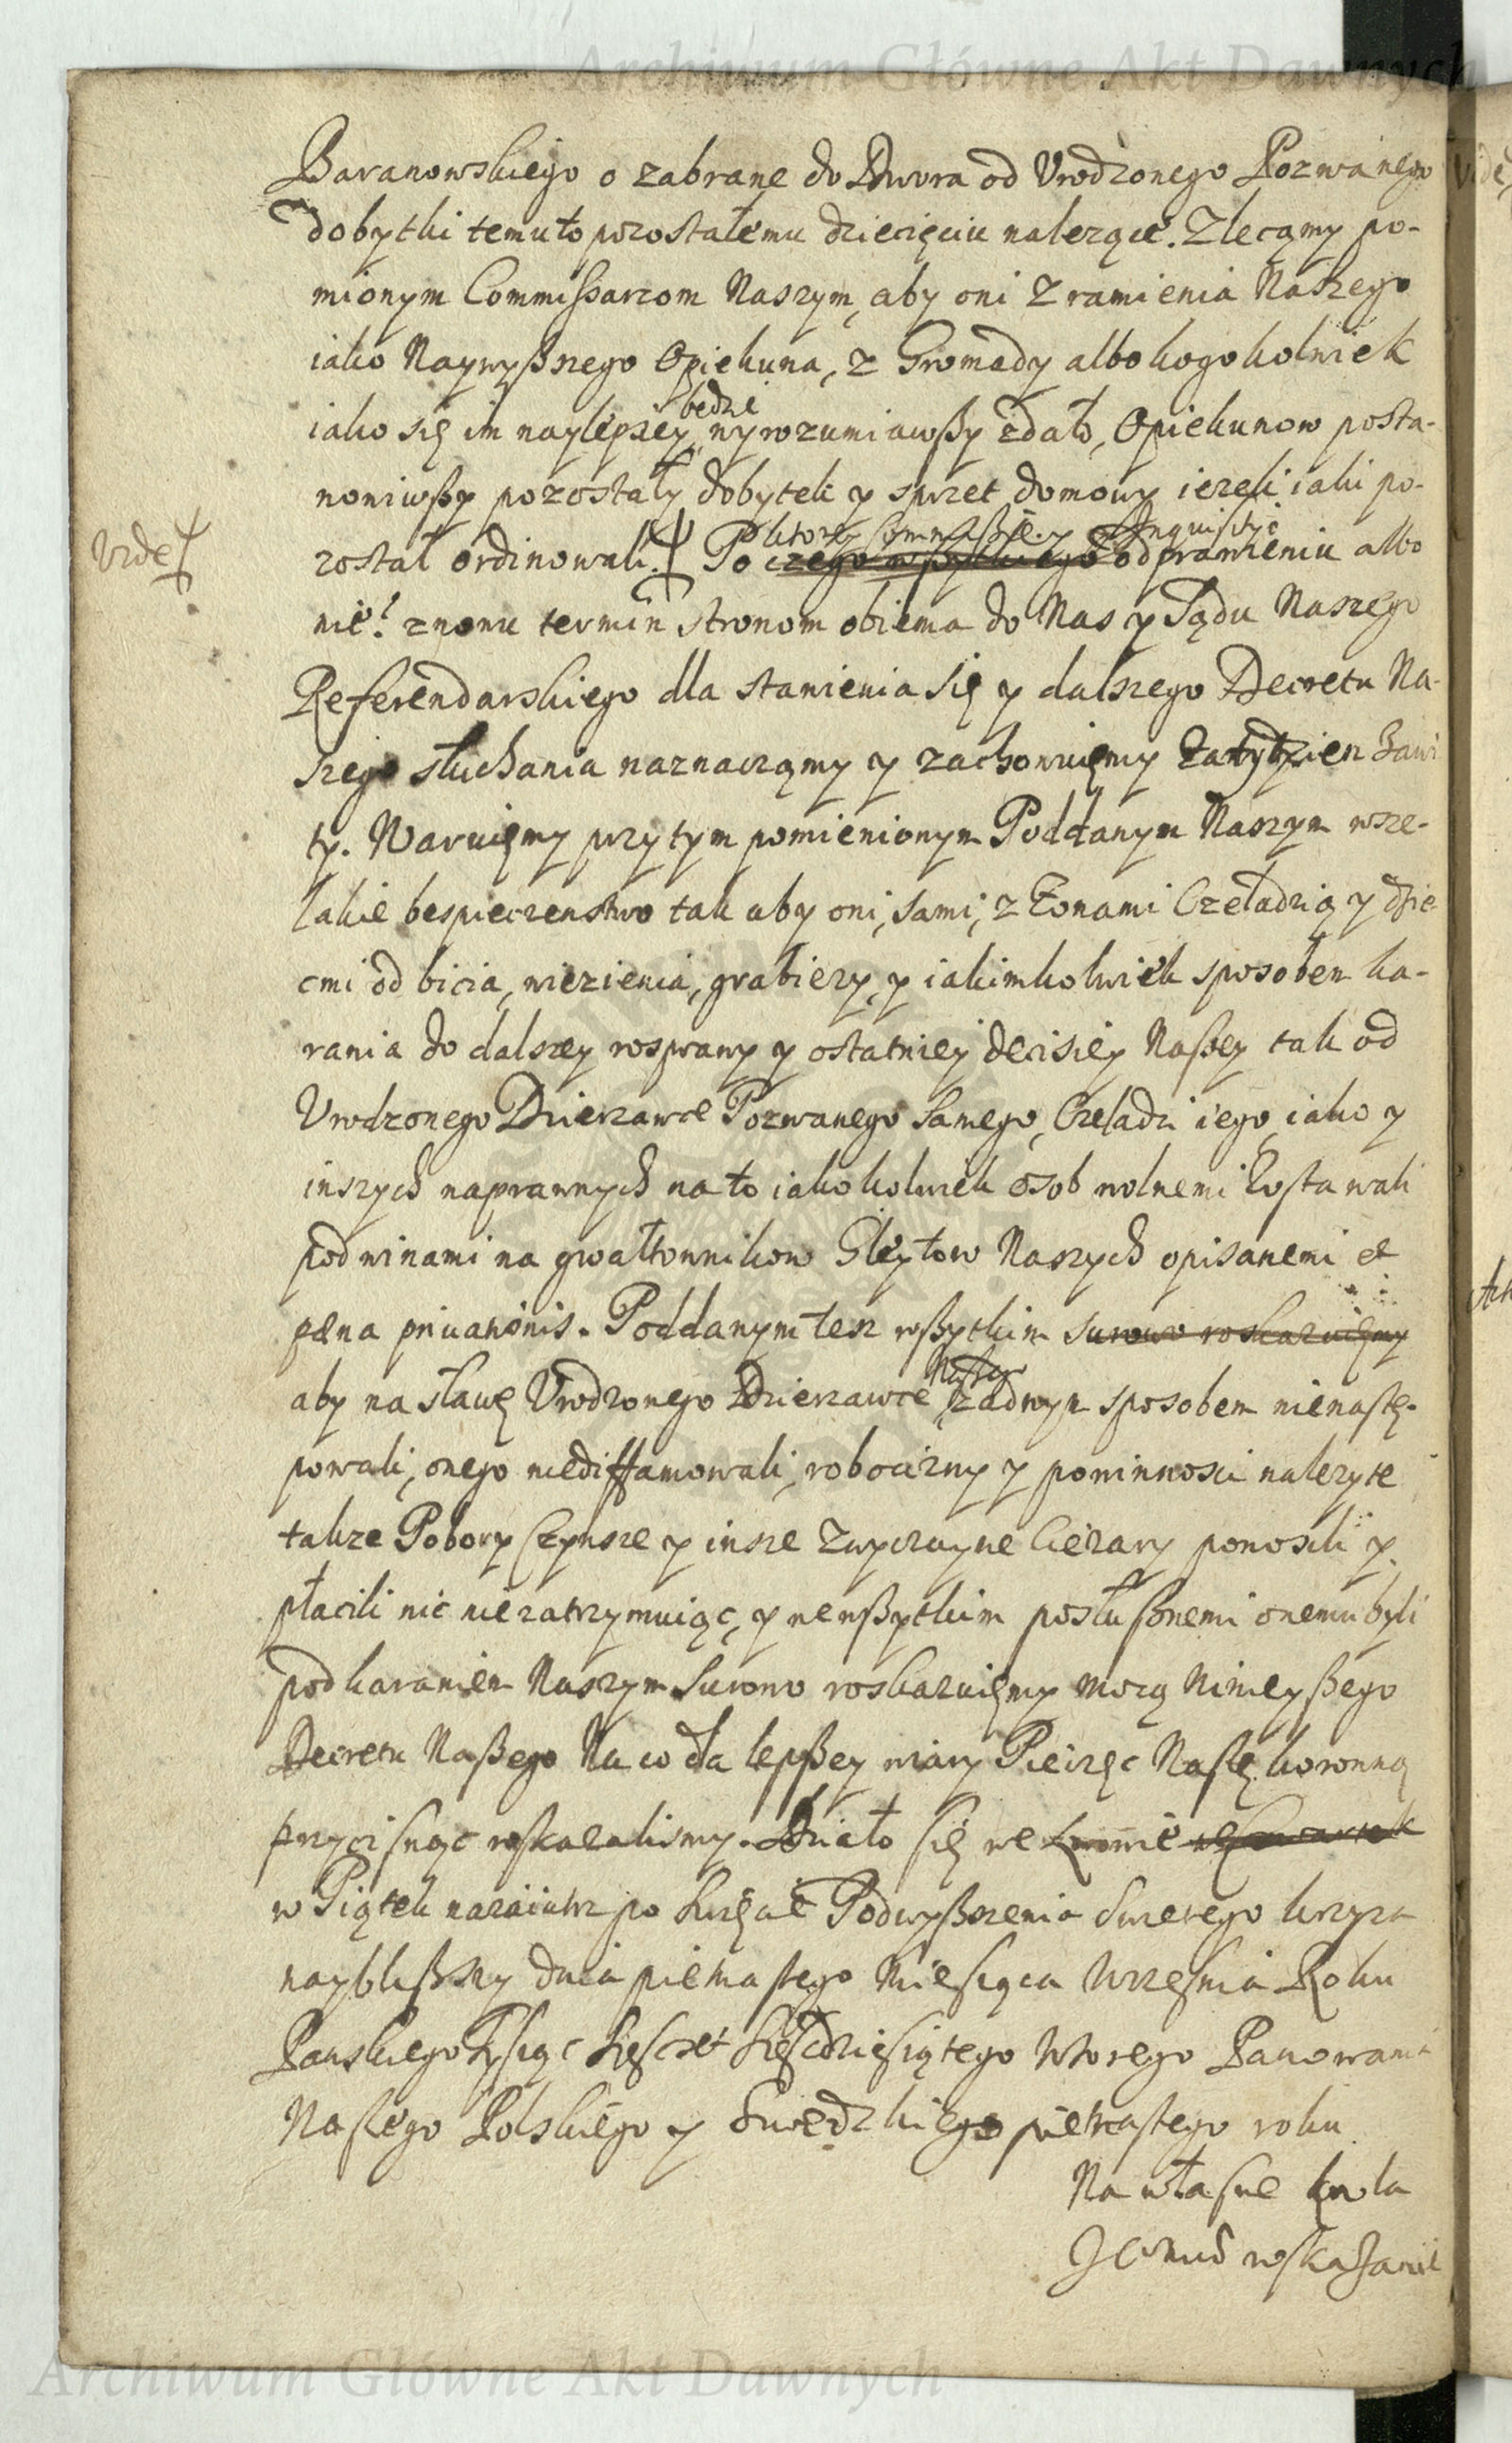 Archiwum Główne Akt Dawnych
Baranowskiego o zabrane do Dwora od Vrodzonego Pozwanego
dobytki temuto pozostałemu dziecięciu nalezące. Zlecamy po-
mionym Commissarzom Naszym, aby oni z ramienia Naszego
iako Naywyßszego Opiekuna, z Gromady albo kogokolwiek
będzie
iako się im naylepiey wyrozumiawßy zdało, Opiekunow posta-
nowiwßy pozostały dobytek y sprzet domowy iezeli iaki po-
ktorey Commissiey y Inquisitiei
Vide
zostal ordinowali. Po czego wszytkiego odprawieniu albo
nie? znowu termin stronom obiema do Nas y Sądu Naszego
Referendarskiego dla stawienia się y dalszego Decretu Na-
szego słuchania naznaczamy y zachowuięmy zakażdzien zawi
ty. Waruięmy przytym pomienionym Poddanym Naszym wsze-
lakie bespieczenstwo tak aby oni, sami, z Zonami Czeładzią y dzie
cmi od bicia, więzienia, grabiezy, y iakimkolwiek sposobem ka-
rania do dalszey rosprawy y ostatniey decisiey Naßey tak od
Vrodzonego Dzierzawce Pozwanego samego, Czeladzi iego, iako y
inszych naprawnych na to iakokolwiek osob wolnemi zostawali
pod winami na gwałtownikow Gleytow Naszych opisanemi et
pæna priuationis. Poddanym tesz wßytkim surowo roskazuięmy
Naßego
aby na sławę Vrodzonego Dzierzawce żadnym sposobem nienastę-
powali, onego niediffamowali, robocizny y powinnosci nalezyte
takze Pobory Czynsze y insze zwyczayne Cięzary ponosili y
płacili nic niezatrzymuiąc, y wewßytkim posłusznemi onemu byli
pod karaniem Naszym surowo roskazuięmy mocą Ninieyßego
Decretu Naßego Na co dla lepßey wiary Pieczęc Naszę koronną
przycisnąc roskazalismy. Działo się we Lwowie we Czwartek
w Piątek nazaiutrz po Swięcie Podwyßszenia Swietego krzyza
nayblißszy dnia pietnastego Miesiąca Wrzesnia Roku
Panskiego Tysiąc Szesczset Szescdziesiątego Wtorego Panowania
Naszego Polskiego y Swedzkiego pietnastego roku
Na własne krola
Je Mci roskazanie
Archiwum Główne Akt Dawnych